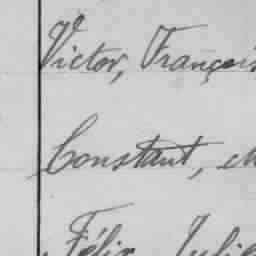 Victor, François
Constant,
Félix Julie